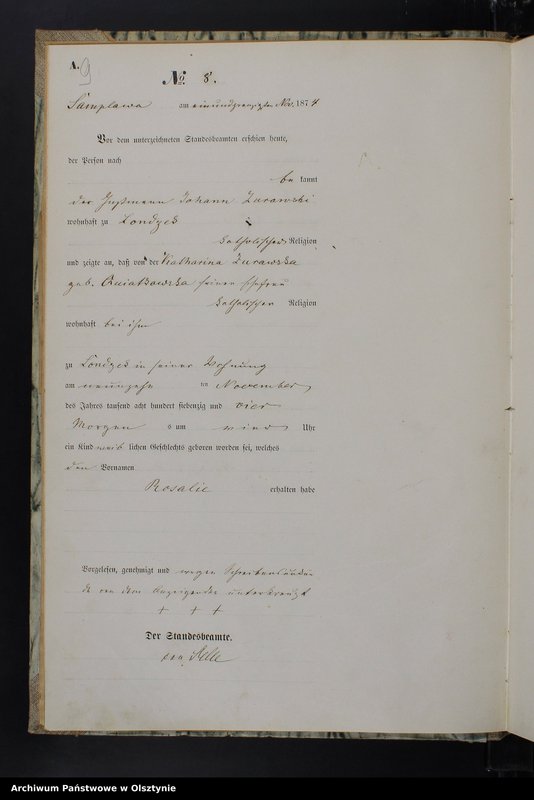 A. 9
No. 8.
Samplawa am einundzwanzigsten Nov. 1874
Vor dem unterzeichneten Standesbeamten erschien heute,
der Person nach
be kannt
der Johann Zurawski
wohnhaft zu Londzek
katholischer Religion
und zeigte an, daß von der Katharina Zurawska
geb. Kwiatkowska seiner Ehefrau
katholischer Religion
wohnhaft bei ihm
zu Londzek in seiner Wohnung
am neunzehn ten November
des Jahres tausend acht hundert siebenzig und vier
Morgen s um vier Uhr
ein Kind weib lichen Geschlechts geboren worden sei, welches
den Vornamen
Rosalie erhalten habe
Vorgelesen, genehmigt und wegen Schreibensunkun
de von dem Anzeigenden unterkreuzt
+ + +
Der Standesbeamte.
Archiwum Państwowe w Olsztynie